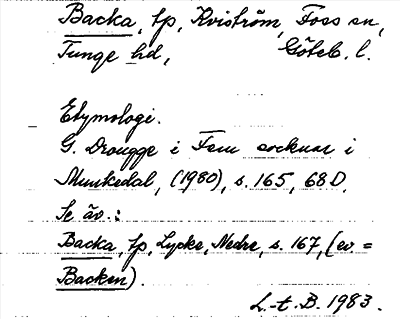 Backa, tp, Kviström, Foss sn,
Tunge hd, Göteb. l.
Etymologi.
G. Drougge i Fem socknar i
Munkedal, (1980), s. 165, 68 D.
Se äv.:
Backa, tp, Lycke, Nedre, s. 167, (ev =
Backen).
L.-t. B. 1983.